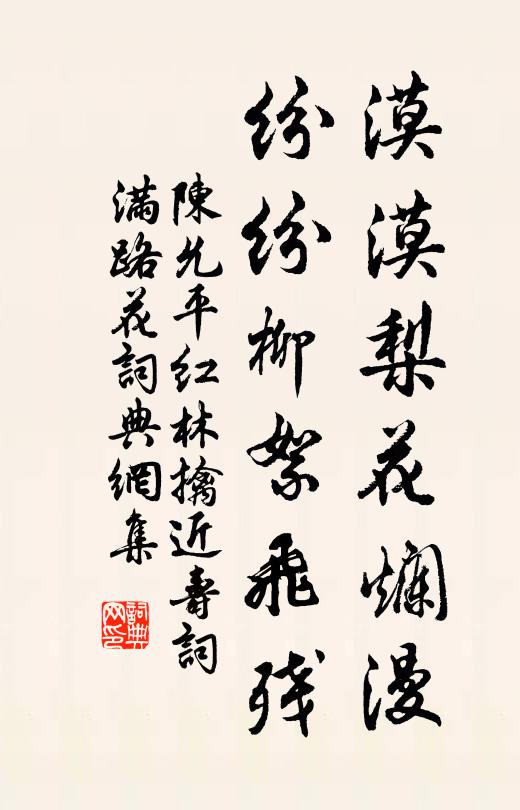 漠漠梨花爛漫
紛紛柳絮飛残
陳允平紅林擒近壽詞
滿路花詞典網集
詞典網印